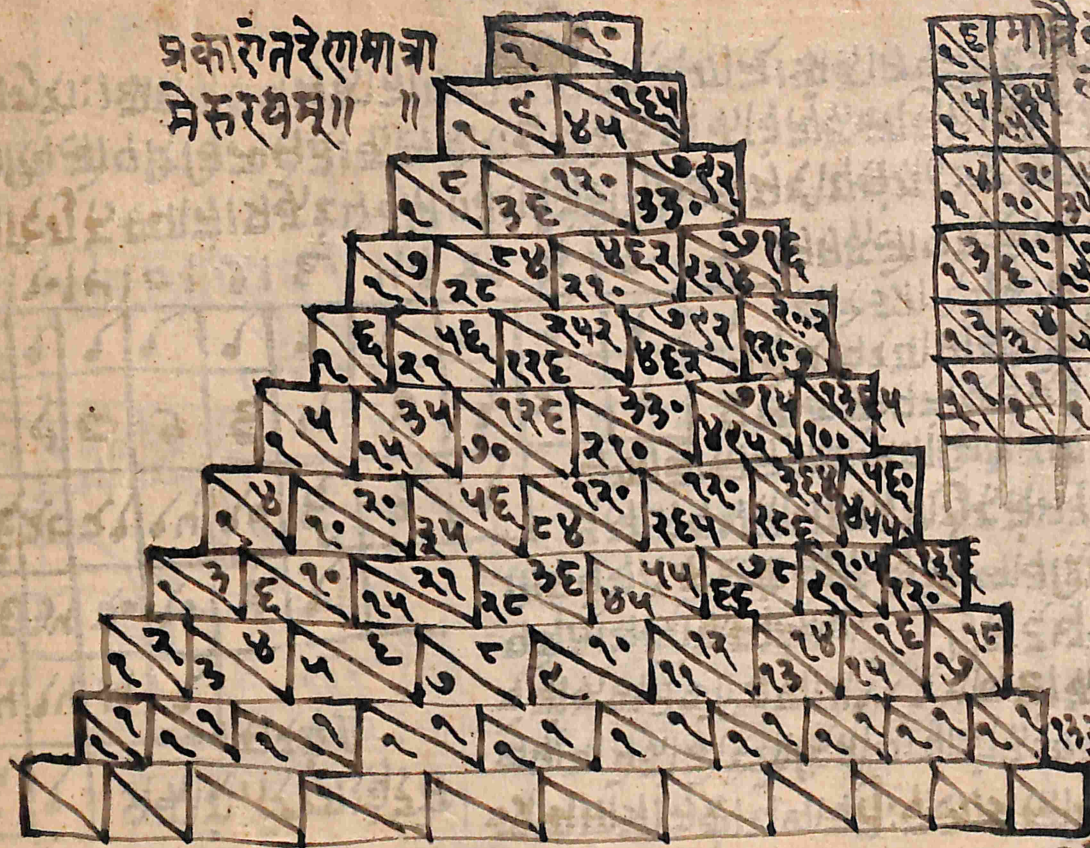 प्रकारांतरेणमात्रा
मेरुरयम्॥ ॥
१ १०
१ ९ ४५ १६५
१ ८ ३६ १२० ३३० ७९२
१ ७ २८ ८४ २१० ४६२
१ ६ २१ ५६ १२६ २५२ ४६२ ७९२
१ ५ १५ ३५ ७० १२६ २१० ३३० ४९५ ७१५
१ ४ १० २० ३५ ५६ ८४ १२०
१ ३ ६ १० १५ २१ २८ ३६ ४५ ५५ ६६ ७८ ९१ १०५ १२०
१ २ ३ ४ ५ ६ ७ ८ ९ १० ११ १२ १३ १४ १५ १६ १७ १८
१ १ १ १ १ १ १ १ १ १ १ १ १ १ १ १ १ १ १ १
६
१ ५
१ ४ १० २०
१ ३ ६ १०
१ २ ४
१ १ १ १